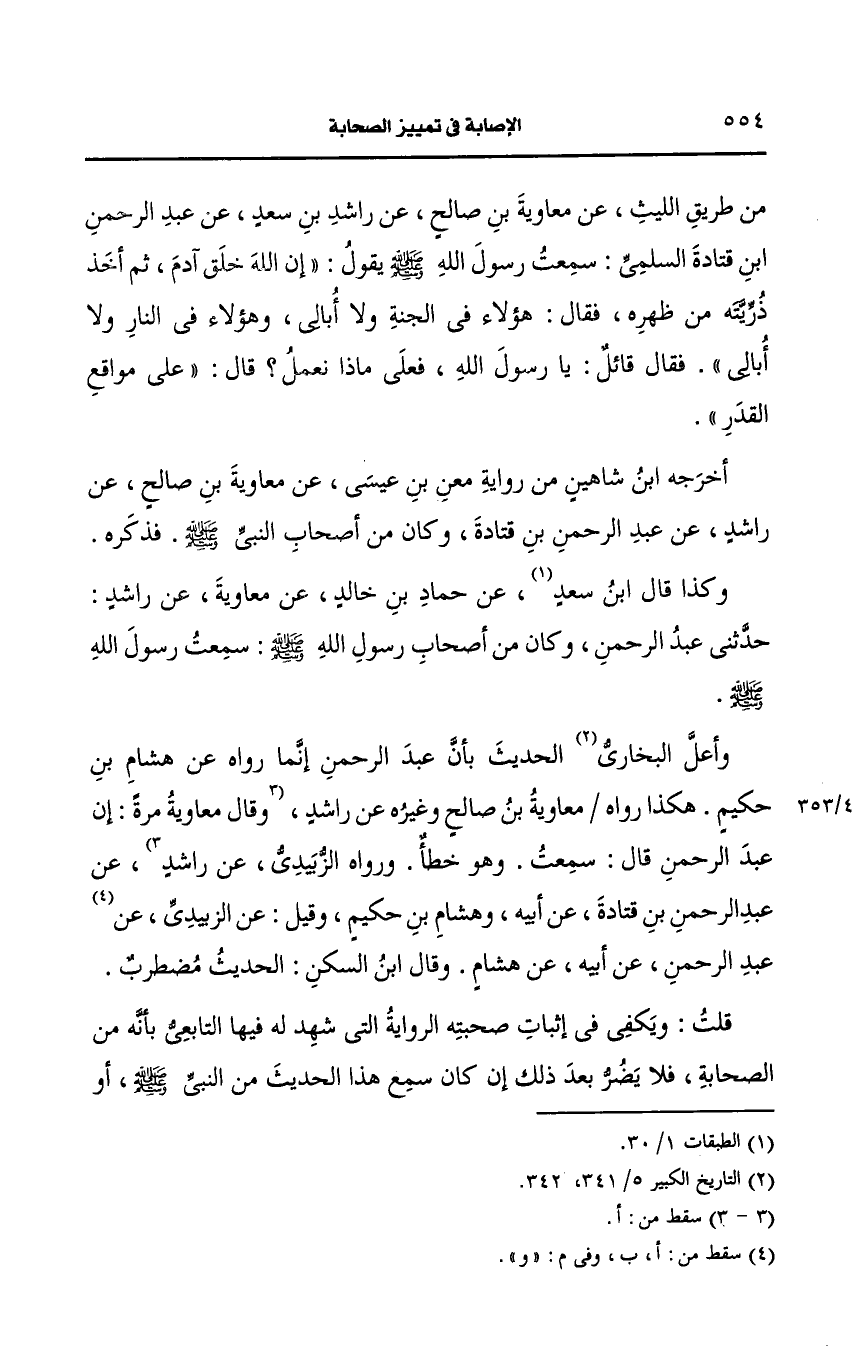 ٥٥٤ الإصابة فى تمييز الصحابة
من طريقِ الليثِ ، عن معاويةَ بنِ صالحٍ ، عن راشدِ بنِ سعدٍ ، عن عبدِ الرحمنِ
ابنِ قتادةَ السلمِىِّ : سمِعتُ رسولَ اللهِ ﷺ يقولُ : « إن اللهَ خلَق آدمَ ، ثم أخَذ
ذُرِّيَّتَه من ظهرِه ، فقال : هؤلاء فى الجنةِ ولا أُبالِى ، وهؤلاء فى النارِ ولا
أُبالِى » . فقال قائلٌ : يا رسولَ اللهِ ، فعلَى ماذا نعملُ ؟ قال : « على مواقعِ
القدَرِ » .
أخرَجه ابنُ شاهينٍ من روايةِ معنِ بنِ عيسَى ، عن معاويةَ بنِ صالحٍ ، عن
راشدٍ ، عن عبدِ الرحمنِ بنِ قتادةَ ، وكان من أصحابِ النبىِّ ﷺ . فذكَره .
وكذا قال ابنُ سعدٍ(١) ، عن حمادِ بنِ خالدٍ ، عن معاويةَ ، عن راشدٍ :
حدَّثنى عبدُ الرحمنِ ، وكان من أصحابِ رسولِ اللهِ ﷺ : سمِعتُ رسولَ اللهِ
ﷺ .
وأعلَّ البخارىُّ(٢) الحديثَ بأنَّ عبدَ الرحمنِ إنَّما رواه عن هشامِ بنِ
حكيمٍ . هكذا رواه / معاويةُ بنُ صالحٍ وغيرُه عن راشدٍ ، (٣وقال معاويةُ مرةً : إن ٣٥٣/٤
عبدَ الرحمنِ قال : سمِعتُ . وهو خطأٌ . ورواه الزُّبَيدِىُّ ، عن راشدٍ٣) ، عن
عبدِالرحمنِ بنِ قتادةَ ، عن أبيه ، وهشامِ بنِ حكيمٍ ، وقيل : عن الزبيدِىِّ ، عن(٤)
عبدِ الرحمنِ ، عن أبيه ، عن هشامٍ . وقال ابنُ السكنِ : الحديثُ مُضطربٌ .
قلتُ : ويَكفِى فى إثباتِ صحبتِه الروايةُ التى شهِد له فيها التابعِىُّ بأنَّه من
الصحابةِ ، فلا يَضُرُّ بعدَ ذلك إن كان سمِع هذا الحديثَ من النبىِّ ﷺ ، أو
(١) الطبقات ١/ ٣٠.
(٢) التاريخ الكبير ٥/ ٣٤١، ٣٤٢.
(٣ - ٣) سقط من : أ .
(٤) سقط من : أ ، ب ، وفى م : « و » .